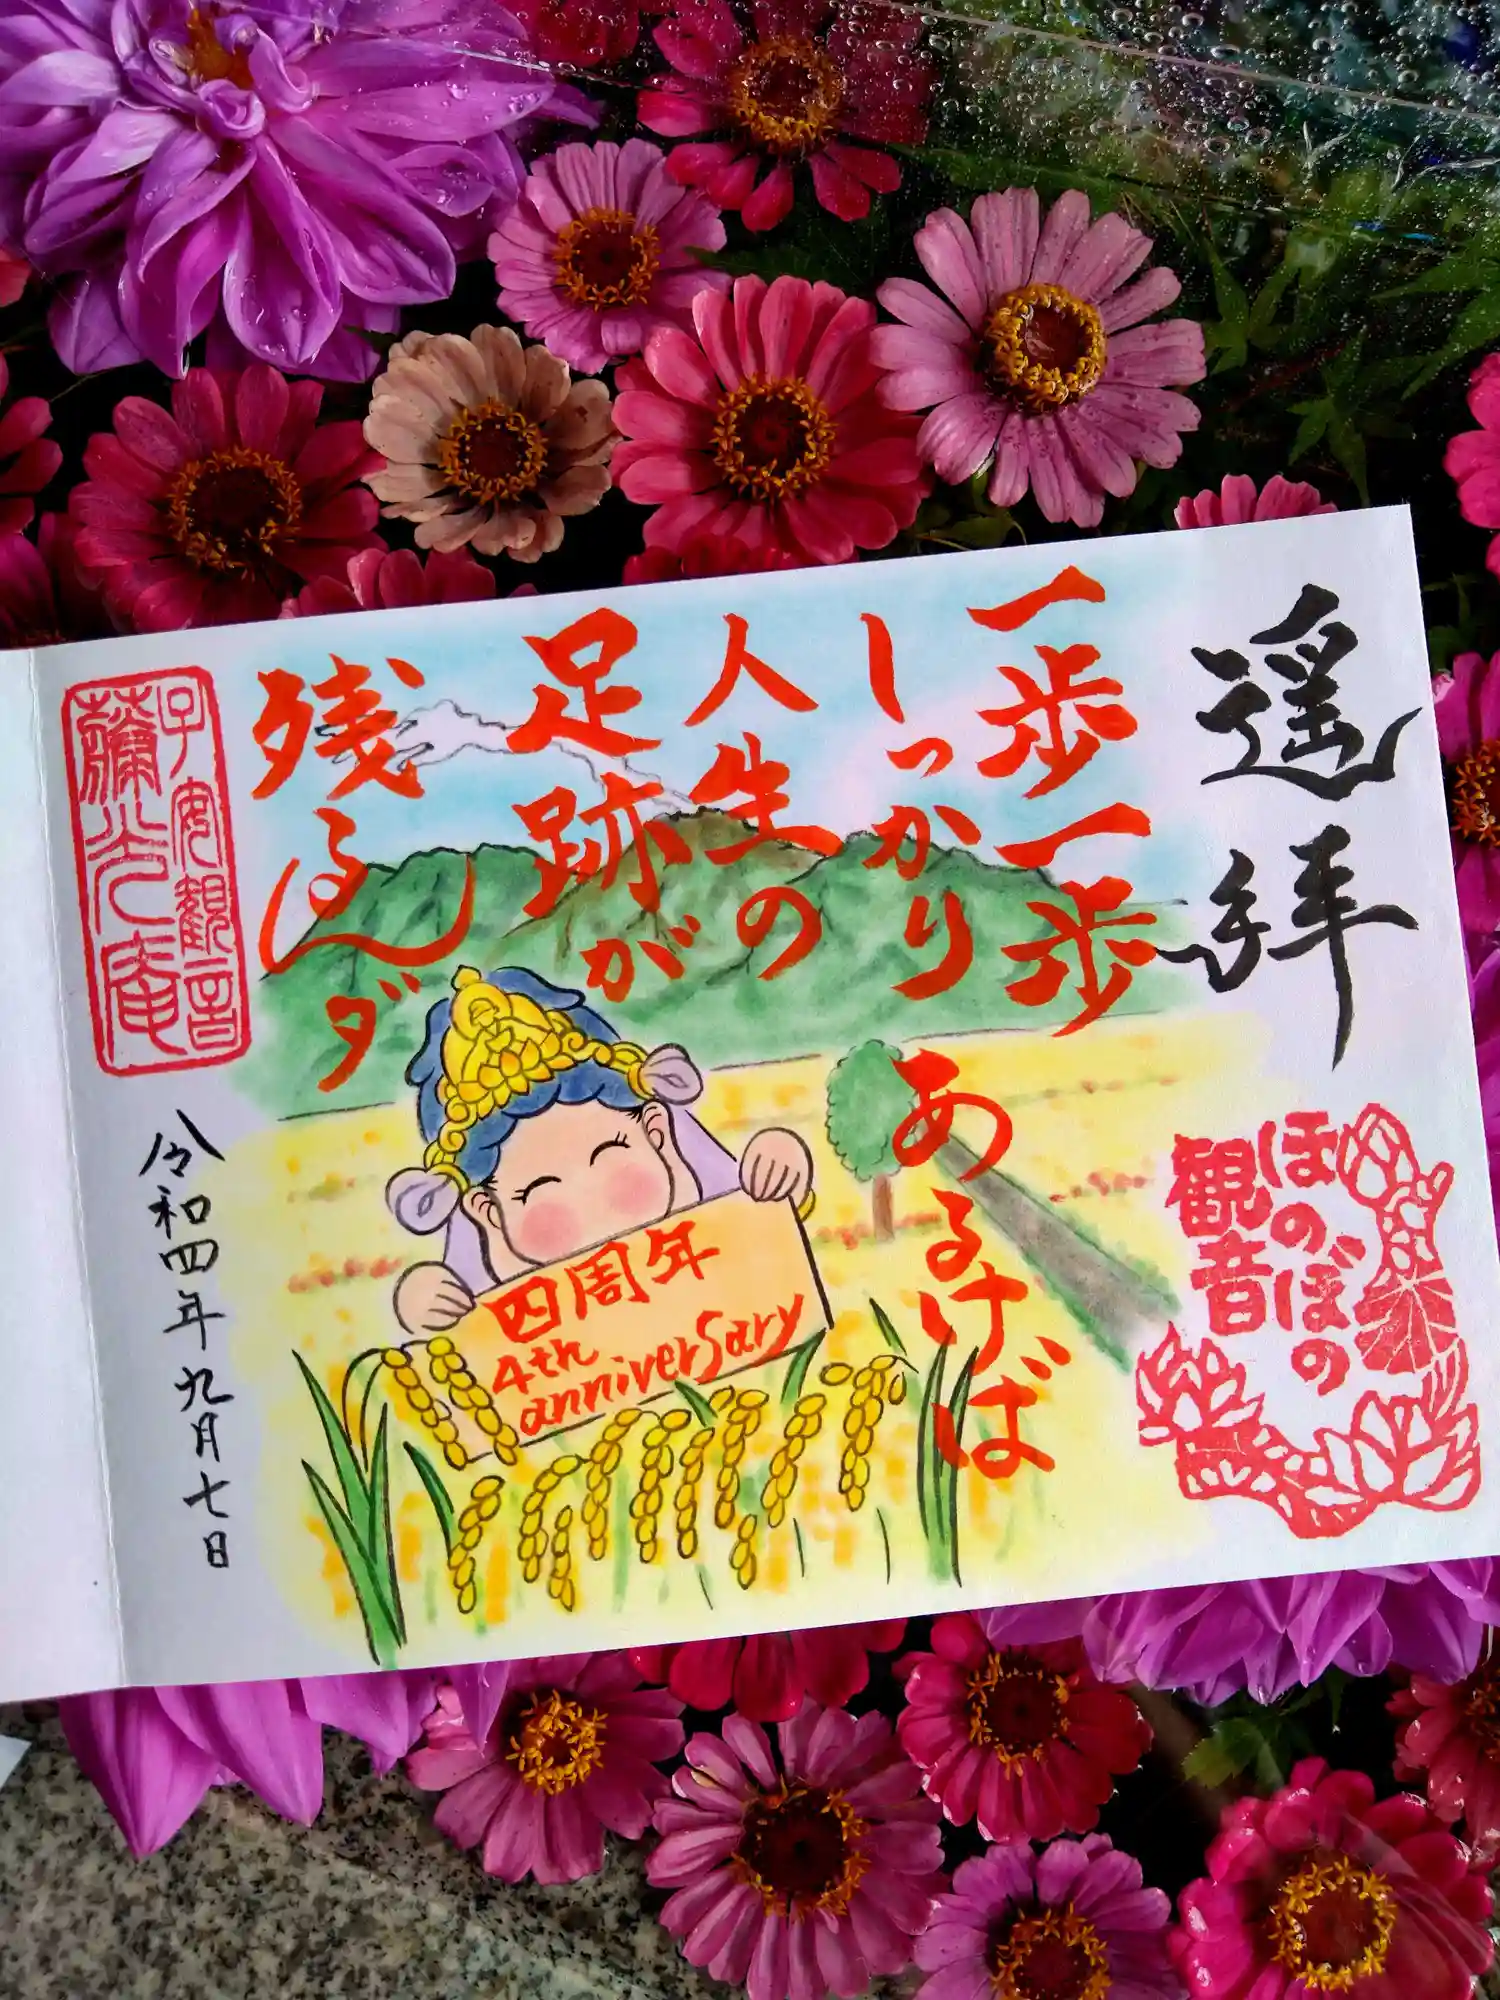 遥拝
ほのぼの
観音
一歩一歩
しっかり
あるけば
人生の
足跡が
残るんダ
四周年
4th
anniversary
子安観音
彌光庵
令和四年九月七日